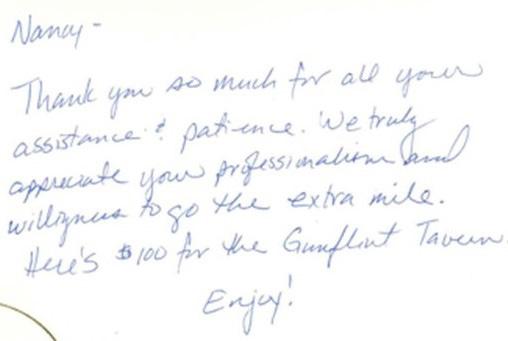 Nancy -
Thank you so much for all your
assistance & patience. We truly
appreciate your professionalism and
willingness to go the extra mile.
Here's $100 for the Gunflint Tavern.
Enjoy!